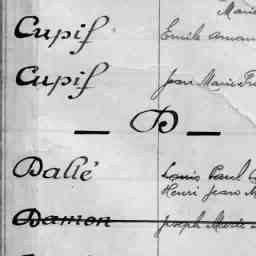 Marie
Cupif Emile Aman
Cupif Jean Marie
— D —
Dallé Louis Paul
Henri Jean M
Damon Joseph Marie